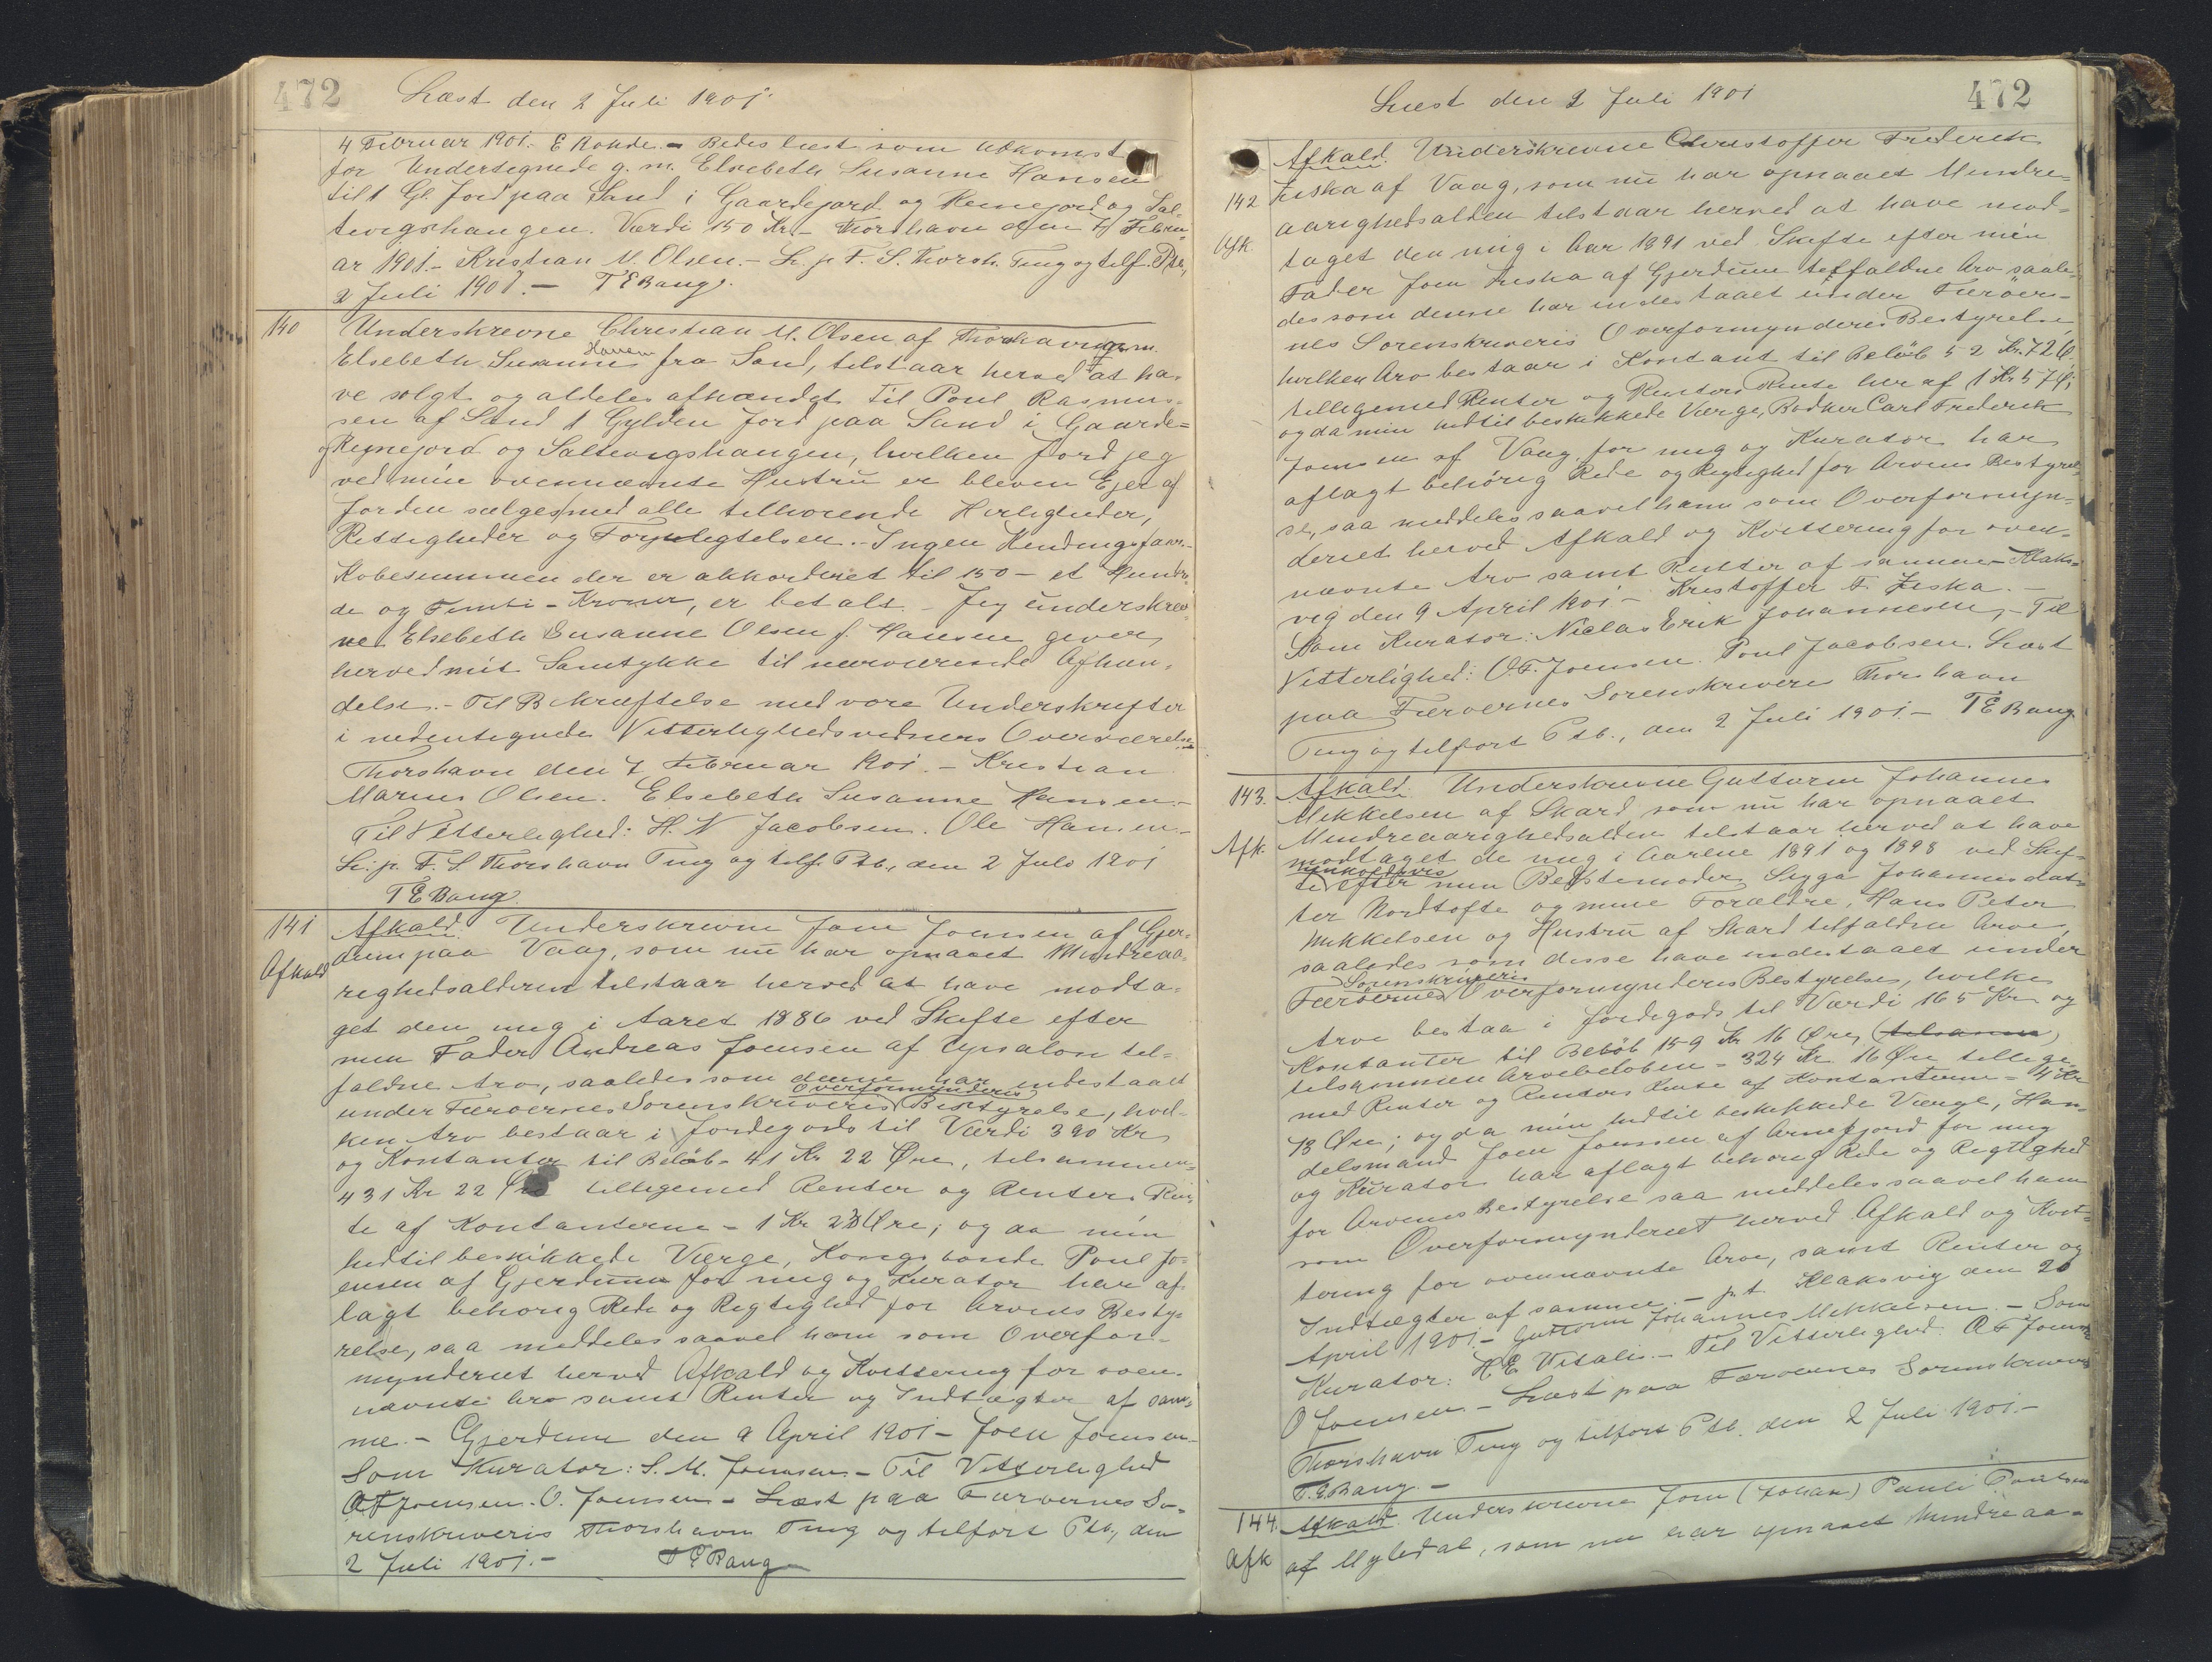 472
Læst den 2 Juli 1901.
4 Februar 1901. E Rohde. - Bedes læst som Adkomst
for Undertegnede g. m. Elsebeth Susanne Hansen
til 1 Gl. Jord paa Sand i Gaardejord og Reinejord og Sal-
tvigshaugen. Værdi 150 Kr. - Thorshavn den 7 Febru-
ar 1901. - Kristian M. Olsen. - L. p. F. S. Thorsh. Ting og tilf. Ptb.,
2 Juli 1901. - T E Bang.
140 Underskrevne Christian M. Olsen af Thorshavn g. m.
Elsebeth Susanne Hansen fra Sand, tilstaar herved at ha-
ve solgt og aldeles afhændet til Poul Rasmus-
sen af Sand 1 Gylden Jord paa Sand i Gaarde-
og Reynejord og Saltvigshaugen, hvilken Jord jeg
ved min ovennævnte Hustru er bleven Ejer af
Jorden sælges med alle tilhørende Herligheder,
Rettigheder og Forpligtelser. - Ingen Kendingsfanr. -
Købesummen der er akkorderet til 150 - et Hundre-
de og Femti - Kroner, er betalt. - Jeg underskrev-
ne Elsebeth Susanne Olsen f. Hansen giver
herved mit Samtykke til nærværende Afhæn-
delse. - Til Bekræftelse med vore Underskrifter
i nedentegnede Vitterlighedsvidners Overværelse
Thorshavn den 7 Februar 1901. - Kristian
Marius Olsen. Elsebeth Susanne Hansen. -
Til Vitterlighed: H. N Jacobsen. Ole Hansen. -
L. p. F. S. Thorshavn Ting og tilf. Ptb., den 2 Juli 1901
T E Bang.
141 Afkald. Underskrevne Joen Joensen af Gjer-
Afkald dum paa Vaag, som nu har opnaaet Mindreaa-
righedsalderen tilstaar herved at have modta-
get den mig i Aaret 1886 ved Skifte efter
min Fader Andreas Joensen af til-
faldne Arv, saaledes som denne har indestaaet
under Færøernes Sorenskriveris Overformynderis Bestyrelse, hvil-
ken Arv bestaar i Jordegods til Værdi 390 Kr
og Kontanter til Beløb - 41 Kr 22 Øre, tilsammen -
431 Kr 22 Øre tilligemed Renter og Renters Ren-
te af Kontanterne - 1 Kr 23 Øre; og da min
hidtil beskikkede Værge, Kongsbonde Poul Jo-
ensen af Gjerdum for mig og Kurator har af-
lagt behørig Rede og Rigtighed for Arvens Besty-
relse, saa meddeles saavel ham som Overfor-
mynderiet herved Afkald og Kvittering for oven-
nævnte Arv samt Renter og Indtægter af sam-
me. - Gjerdum den 9 April 1901 - Joen Joensen -
Som Kurator: S. M. Joensen. - Til Vitterlighed
O F Joensen. O. Joensen - Læst paa Færøernes So-
renskriveris Thorshavn Ting og tilført Ptb., den
2 Juli 1901. - T E Bang
472
Læst den 2 Juli 1901
Afkald. Underskrevne Christoffer Frederik
142 Ziska af Vaag, som nu har opnaaet Mindre-
aarighedsalderen tilstaar herved at have mod-
Afk. taget den mig i Aar 1891 ved Skifte efter min
Fader Joen Ziska af Gjerdum tilfaldne Arv saale-
des som denne har indestaaet under Færøer-
nes Sorenskriveris Overformynderis Bestyrelse
hvilken Arv bestaar i Kontant til Beløb 52 Kr. 72 Ø.
tilligemed Renter og Renters Rente her af 1 Kr 57 Ø;
og da min hidtil beskikkede Værge, Bødker Carl Frederik
Joensen af Vaag for mig og Kurator har
aflagt behörig Rede og Rigtighed for Arvens Bestyrel-
se, saa meddeles saavel ham som Overformyn-
deriet herved Afkald og Kvittering for oven-
nævnte Arv samt Renter af samme - Klaks-
vig den 9 April 1901 - Kristoffer F. Ziska. -
Som Kurator: Niclas Erik Johannesen, - Til
Vitterlighed: O. F. Joensen. Poul Jacobsen. Læst
paa Færøernes Sorenskriveris Thorshavn
Ting og tilført Ptb., den 2 Juli 1901. - T E Bang.
143. Afkald. Underskrevne Guttorm Johannes
Mikkelsen af Skard som nu har opnaaet
Mindreaarighedsalderen tilstaar herved at have
Afk. modtaget de mig i Aarene 1891 og 1898 ved Skif-
te henholdsvis efter min Bedstemoder Sigga Johannesdat-
ter Nordtofte og mine Forældre, Hans Peter
Mikkelsen og Hustru af Skard tilfaldne Arve,
saaledes som disse have indestaaet under
Færöernes Sorenskriveris Overformynderis Bestyrelse, hvilke
Arve bestaa i Jordegods til Værdi 165 Kr og
Kontanter til Beløb 159 Kr 16 Øre, (tilsamm)
tilsammen Arvebeløben - 324 Kr 16 Øre tillige
med Renter og Renters Rente af Kontanterne - 4 Kr
73 Øre; og da min hidtil beskikkede Værge, Han-
delsmand Joen Joensen af Arnefjord for mig
og Kurator har aflagt behørig Rede og Rigtighed
for Arvens Bestyrelse saa meddeles saavel ham
som Overformynderiet herved Afkald og Kvit-
tering for ovennævnte Arve, samt Renter og
Indtægter af samme. - p. t. Klaksvig den 20
April 1901 - Guttorm Johannes Mikkelsen. - Som
Kurator: H E Vitalis. - Til Vitterlighed. O F Joensen
O Joensen - Læst paa Færøernes Sorenskriveris
Thorshavn Ting og tilført Ptb. den 2 Juli 1901. -
T. E Bang. -
144. Afkald. Underskrevne Joen (Johan) Pauli Poulsen
Afk af Mygledal, som nu har opnaaet Mindreaa-